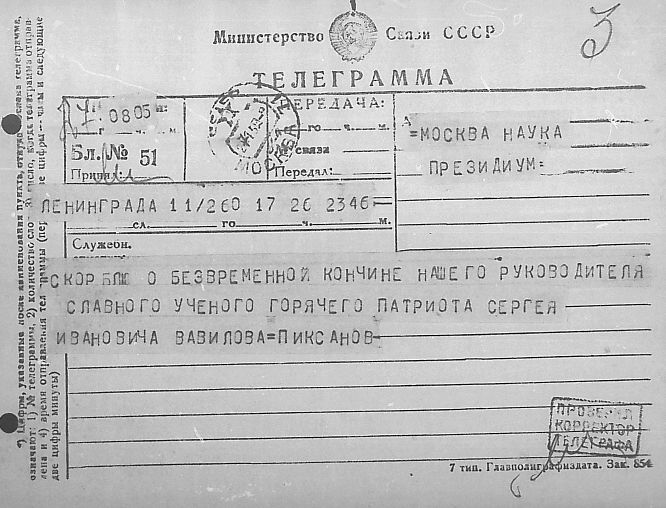 3
Министерство Связи СССР
ТЕЛЕГРАММА
0805
ПЕРЕДАЧА:
го ч. м.
Бл. № 51
№ связи
Принял:
Передал:
МОСКВА
=МОСКВА НАУКА
ПРЕЗИДИУМ=
ЛЕНИНГРАДА 11/260 17 26 2346=
сл. го ч. м.
Служебн.
=СКОРБЛЮ О БЕЗВРЕМЕННОЙ КОНЧИНЕ НАШЕГО РУКОВОДИТЕЛЯ
СЛАВНОГО УЧЕНОГО ГОРЯЧЕГО ПАТРИОТА СЕРГЕЯ
ИВАНОВИЧА ВАВИЛОВА=ПИКСАНОВ-
ПРОВЕРИЛ
КОРРЕКТОР
ТЕЛЕГРАФА
7 тип. Главполиграфиздата. Зак. 854
*) Цифры, указанные после наименования пункта, откуда телеграмма,
означают: 1) № телеграммы, 2) количество слов, число, когда телеграмма
лена и 4) время отправления телеграммы цифры часы и следующие
две цифры минуты)